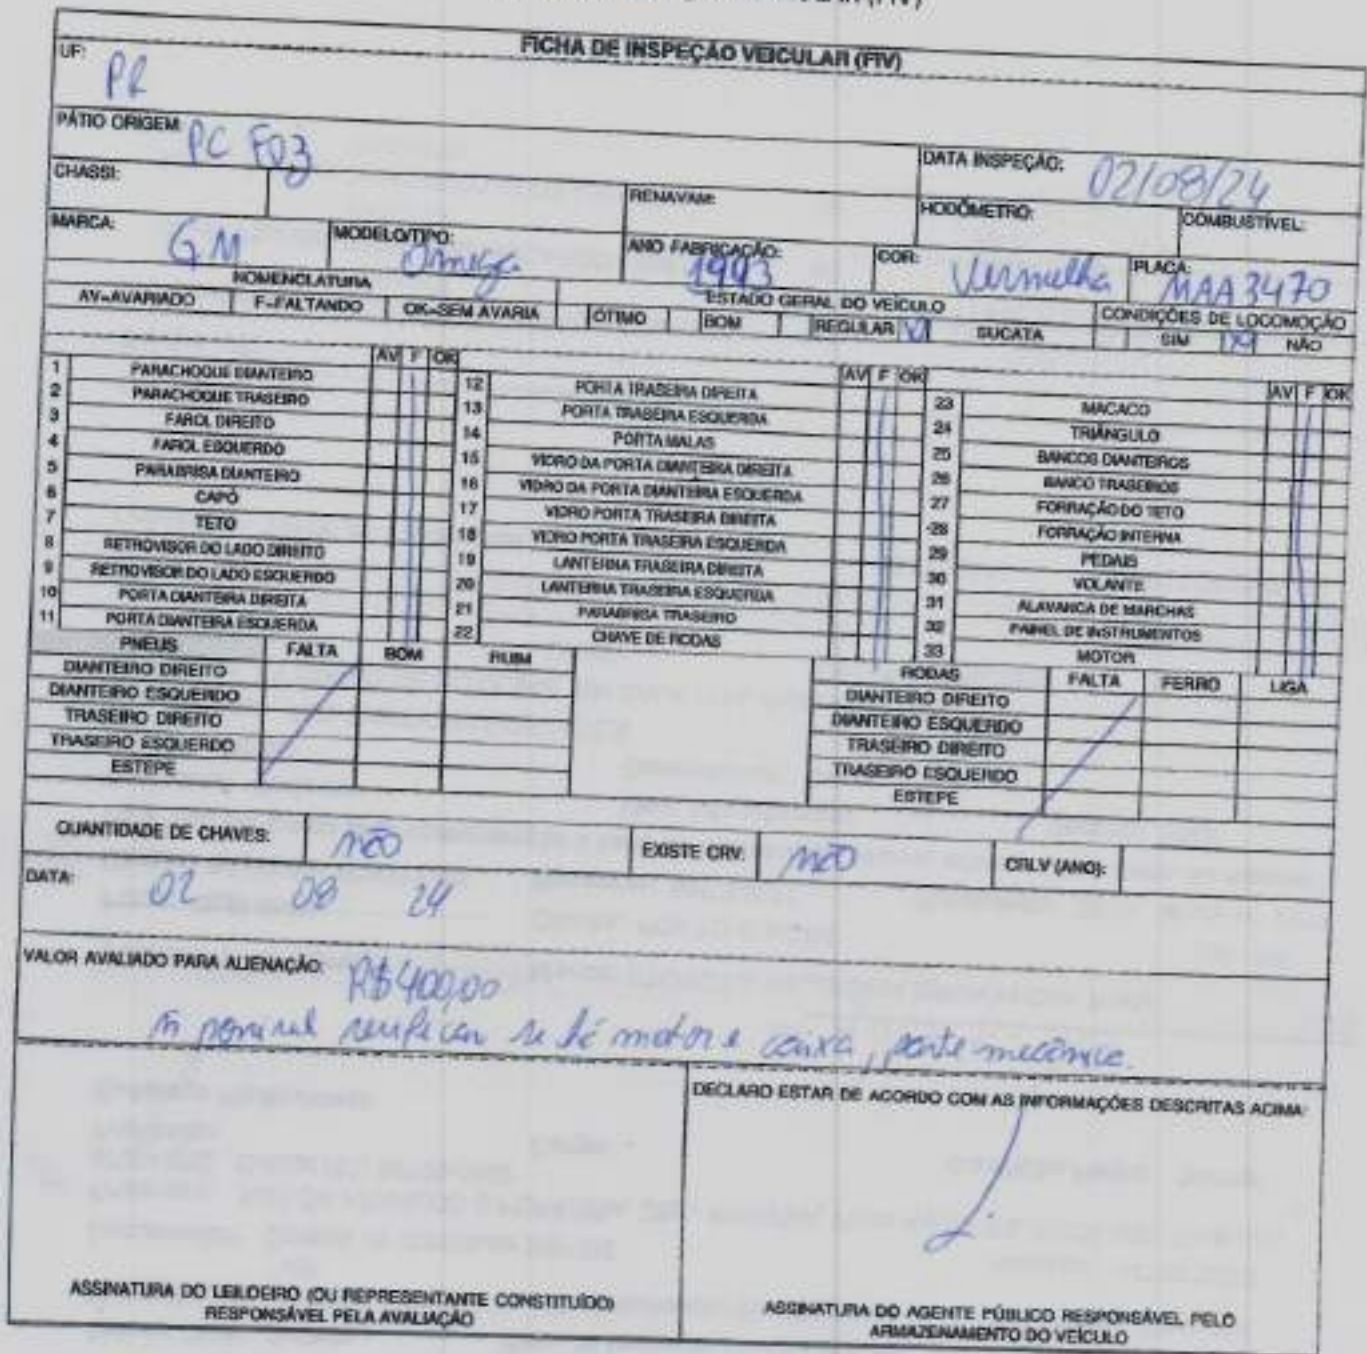 FICHA DE INSPEÇÃO VEICULAR (FIV)
UF: PR
PÁTIO ORIGEM: PC FOZ
DATA INSPEÇÃO: 02/08/24
CHASSI:
RENAVAM:
HODÔMETRO:
COMBUSTÍVEL:
MARCA: GM
MODELO/TIPO: Omega
ANO FABRICAÇÃO: 1993
COR: Vermelha
PLACA: MAA3470
NOMENCLATURA
ESTADO GERAL DO VEÍCULO
CONDIÇÕES DE LOCOMOÇÃO
AV=AVARIADO F=FALTANDO OK=SEM AVARIA ÓTIMO BOM REGULAR SUCATA SIM NÃO
AV F OK
1 PARACHOQUE DIANTEIRO
2 PARACHOQUE TRASEIRO
3 FAROL DIREITO
4 FAROL ESQUERDO
5 PARABRISA DIANTEIRO
6 CAPÔ
7 TETO
8 RETROVISOR DO LADO DIREITO
9 RETROVISOR DO LADO ESQUERDO
10 PORTA DIANTEIRA DIREITA
11 PORTA DIANTEIRA ESQUERDA
AV F OK
12 PORTA TRASEIRA DIREITA
13 PORTA TRASEIRA ESQUERDA
14 PORTA MALAS
15 VIDRO DA PORTA DIANTEIRA DIREITA
16 VIDRO DA PORTA DIANTEIRA ESQUERDA
17 VIDRO PORTA TRASEIRA DIREITA
18 VIDRO PORTA TRASEIRA ESQUERDA
19 LANTERNA TRASEIRA DIREITA
20 LANTERNA TRASEIRA ESQUERDA
21 PARABRISA TRASEIRO
22 CHAVE DE RODAS
AV F OK
23 MACACO
24 TRIÂNGULO
25 BANCOS DIANTEIROS
26 BANCO TRASEIROS
27 FORRAÇÃO DO TETO
28 FORRAÇÃO INTERNA
29 PEDAIS
30 VOLANTE
31 ALAVANCA DE MARCHAS
32 PAINEL DE INSTRUMENTOS
33 MOTOR
PNEUS FALTA BOM RUIM
DIANTEIRO DIREITO
DIANTEIRO ESQUERDO
TRASEIRO DIREITO
TRASEIRO ESQUERDO
ESTEPE
RODAS FALTA FERRO LIGA
DIANTEIRO DIREITO
DIANTEIRO ESQUERDO
TRASEIRO DIREITO
TRASEIRO ESQUERDO
ESTEPE
QUANTIDADE DE CHAVES: não EXISTE CRV: não CRLV (ANO):
DATA: 02 08 24
VALOR AVALIADO PARA ALIENAÇÃO: R$ 400,00
verificar se há motor e caixa, parte mecânica.
DECLARO ESTAR DE ACORDO COM AS INFORMAÇÕES DESCRITAS ACIMA:
ASSINATURA DO LEILOEIRO (OU REPRESENTANTE CONSTITUÍDO)
RESPONSÁVEL PELA AVALIAÇÃO
ASSINATURA DO AGENTE PÚBLICO RESPONSÁVEL PELO
ARMAZENAMENTO DO VEÍCULO